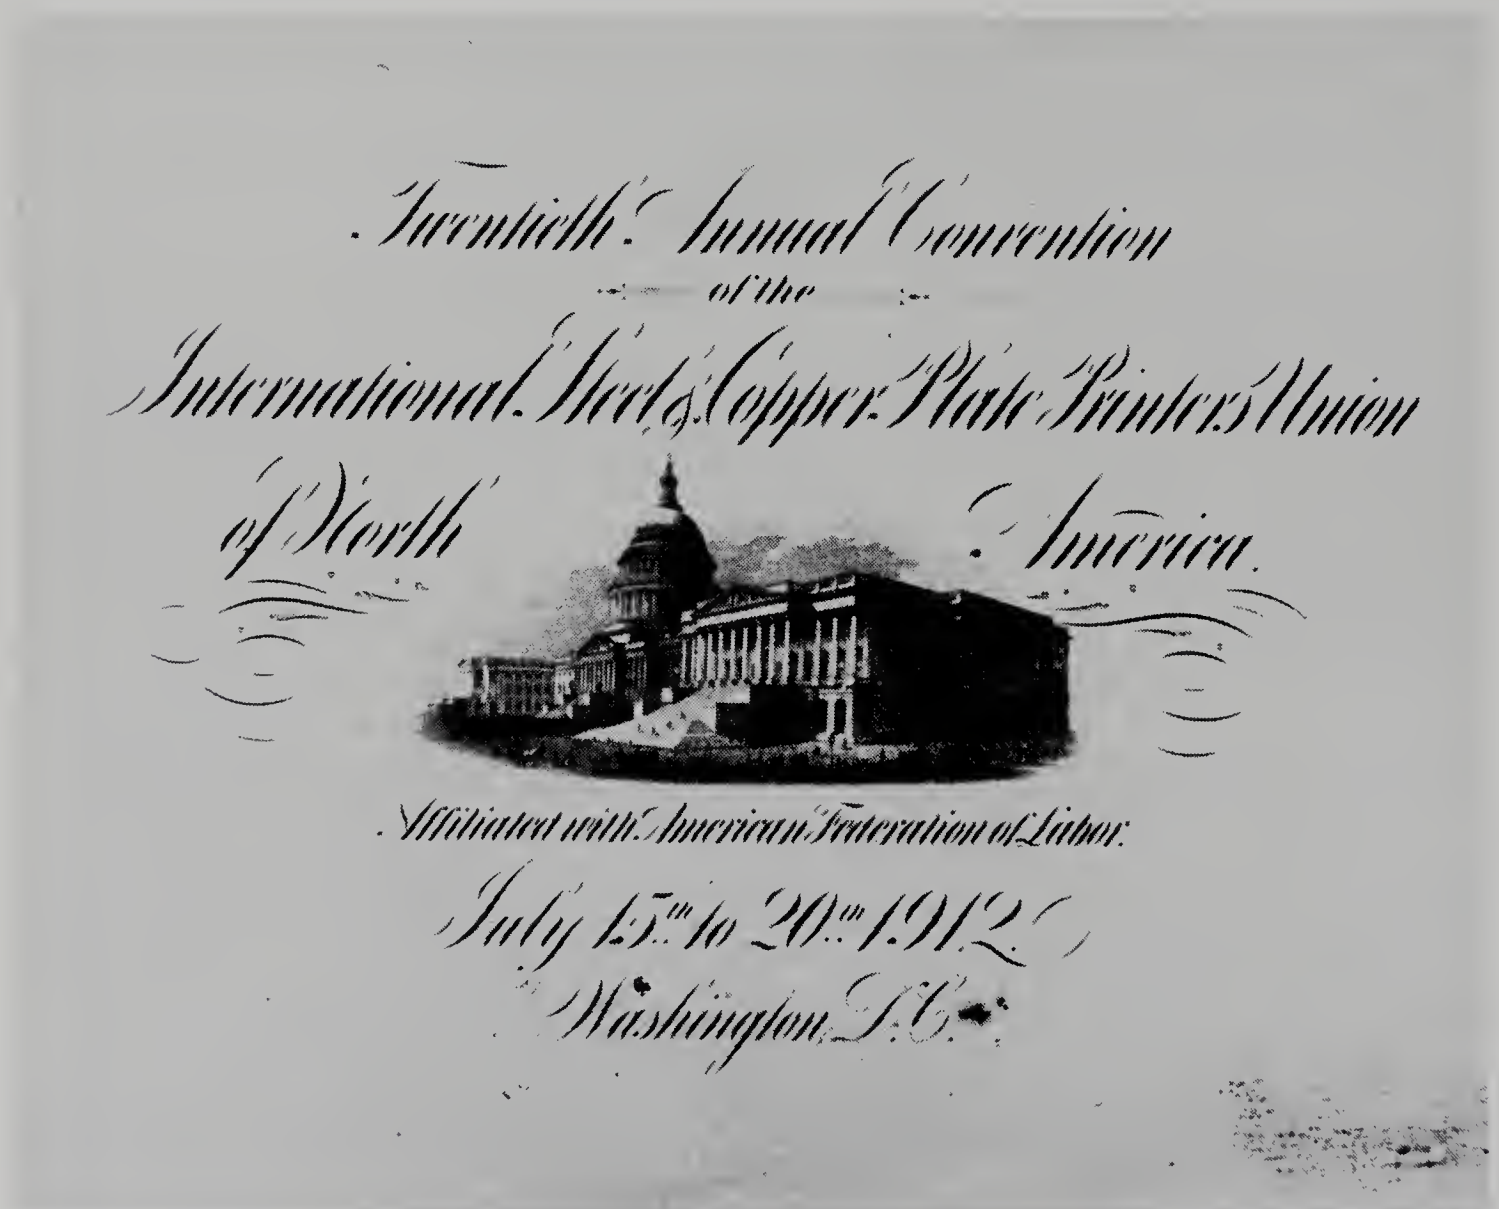 Twentieth Annual Convention
of the
International Steel & Copper Plate Printers Union
of North America.
Affiliated with American Federation of Labor.
July 15th to 20th 1912
Washington, D.C.